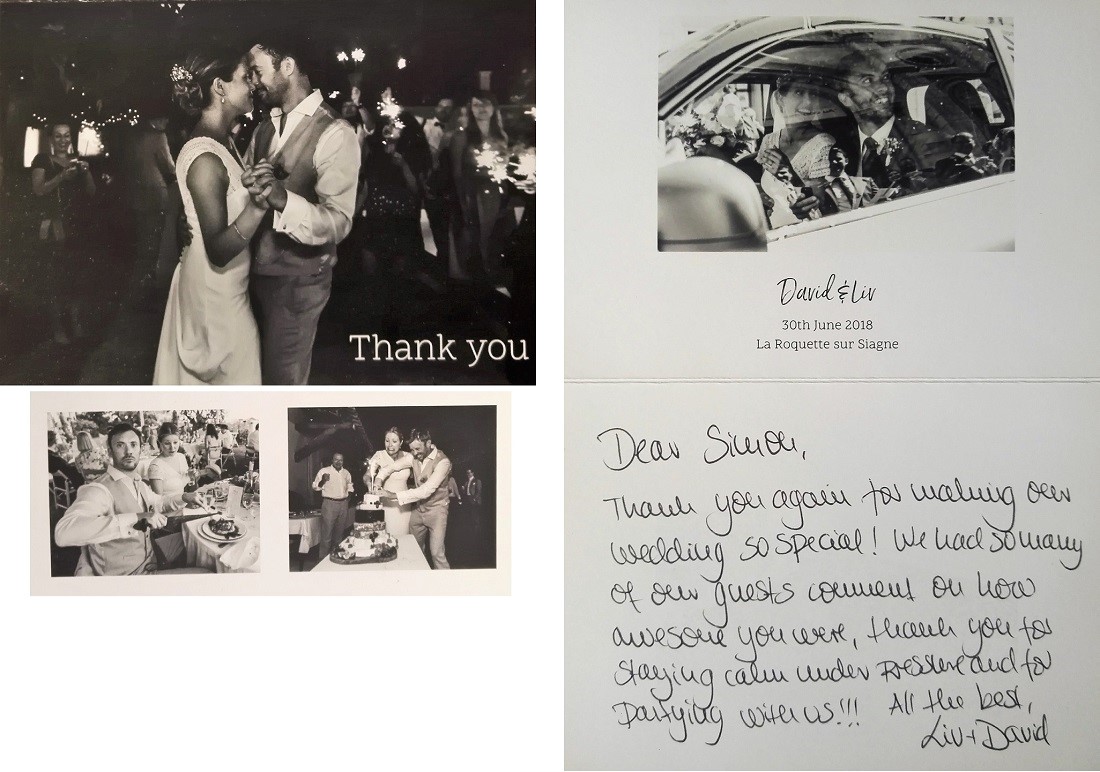 Thank you
David & Liv
30th June 2018
La Roquette sur Siagne
Dear Simon,
Thank you again for making our
wedding so special! We had so many
of our guests comment on how
awesome you were, thank you for
staying calm under pressure and for
Partying with us!!! All the best,
Liv + David